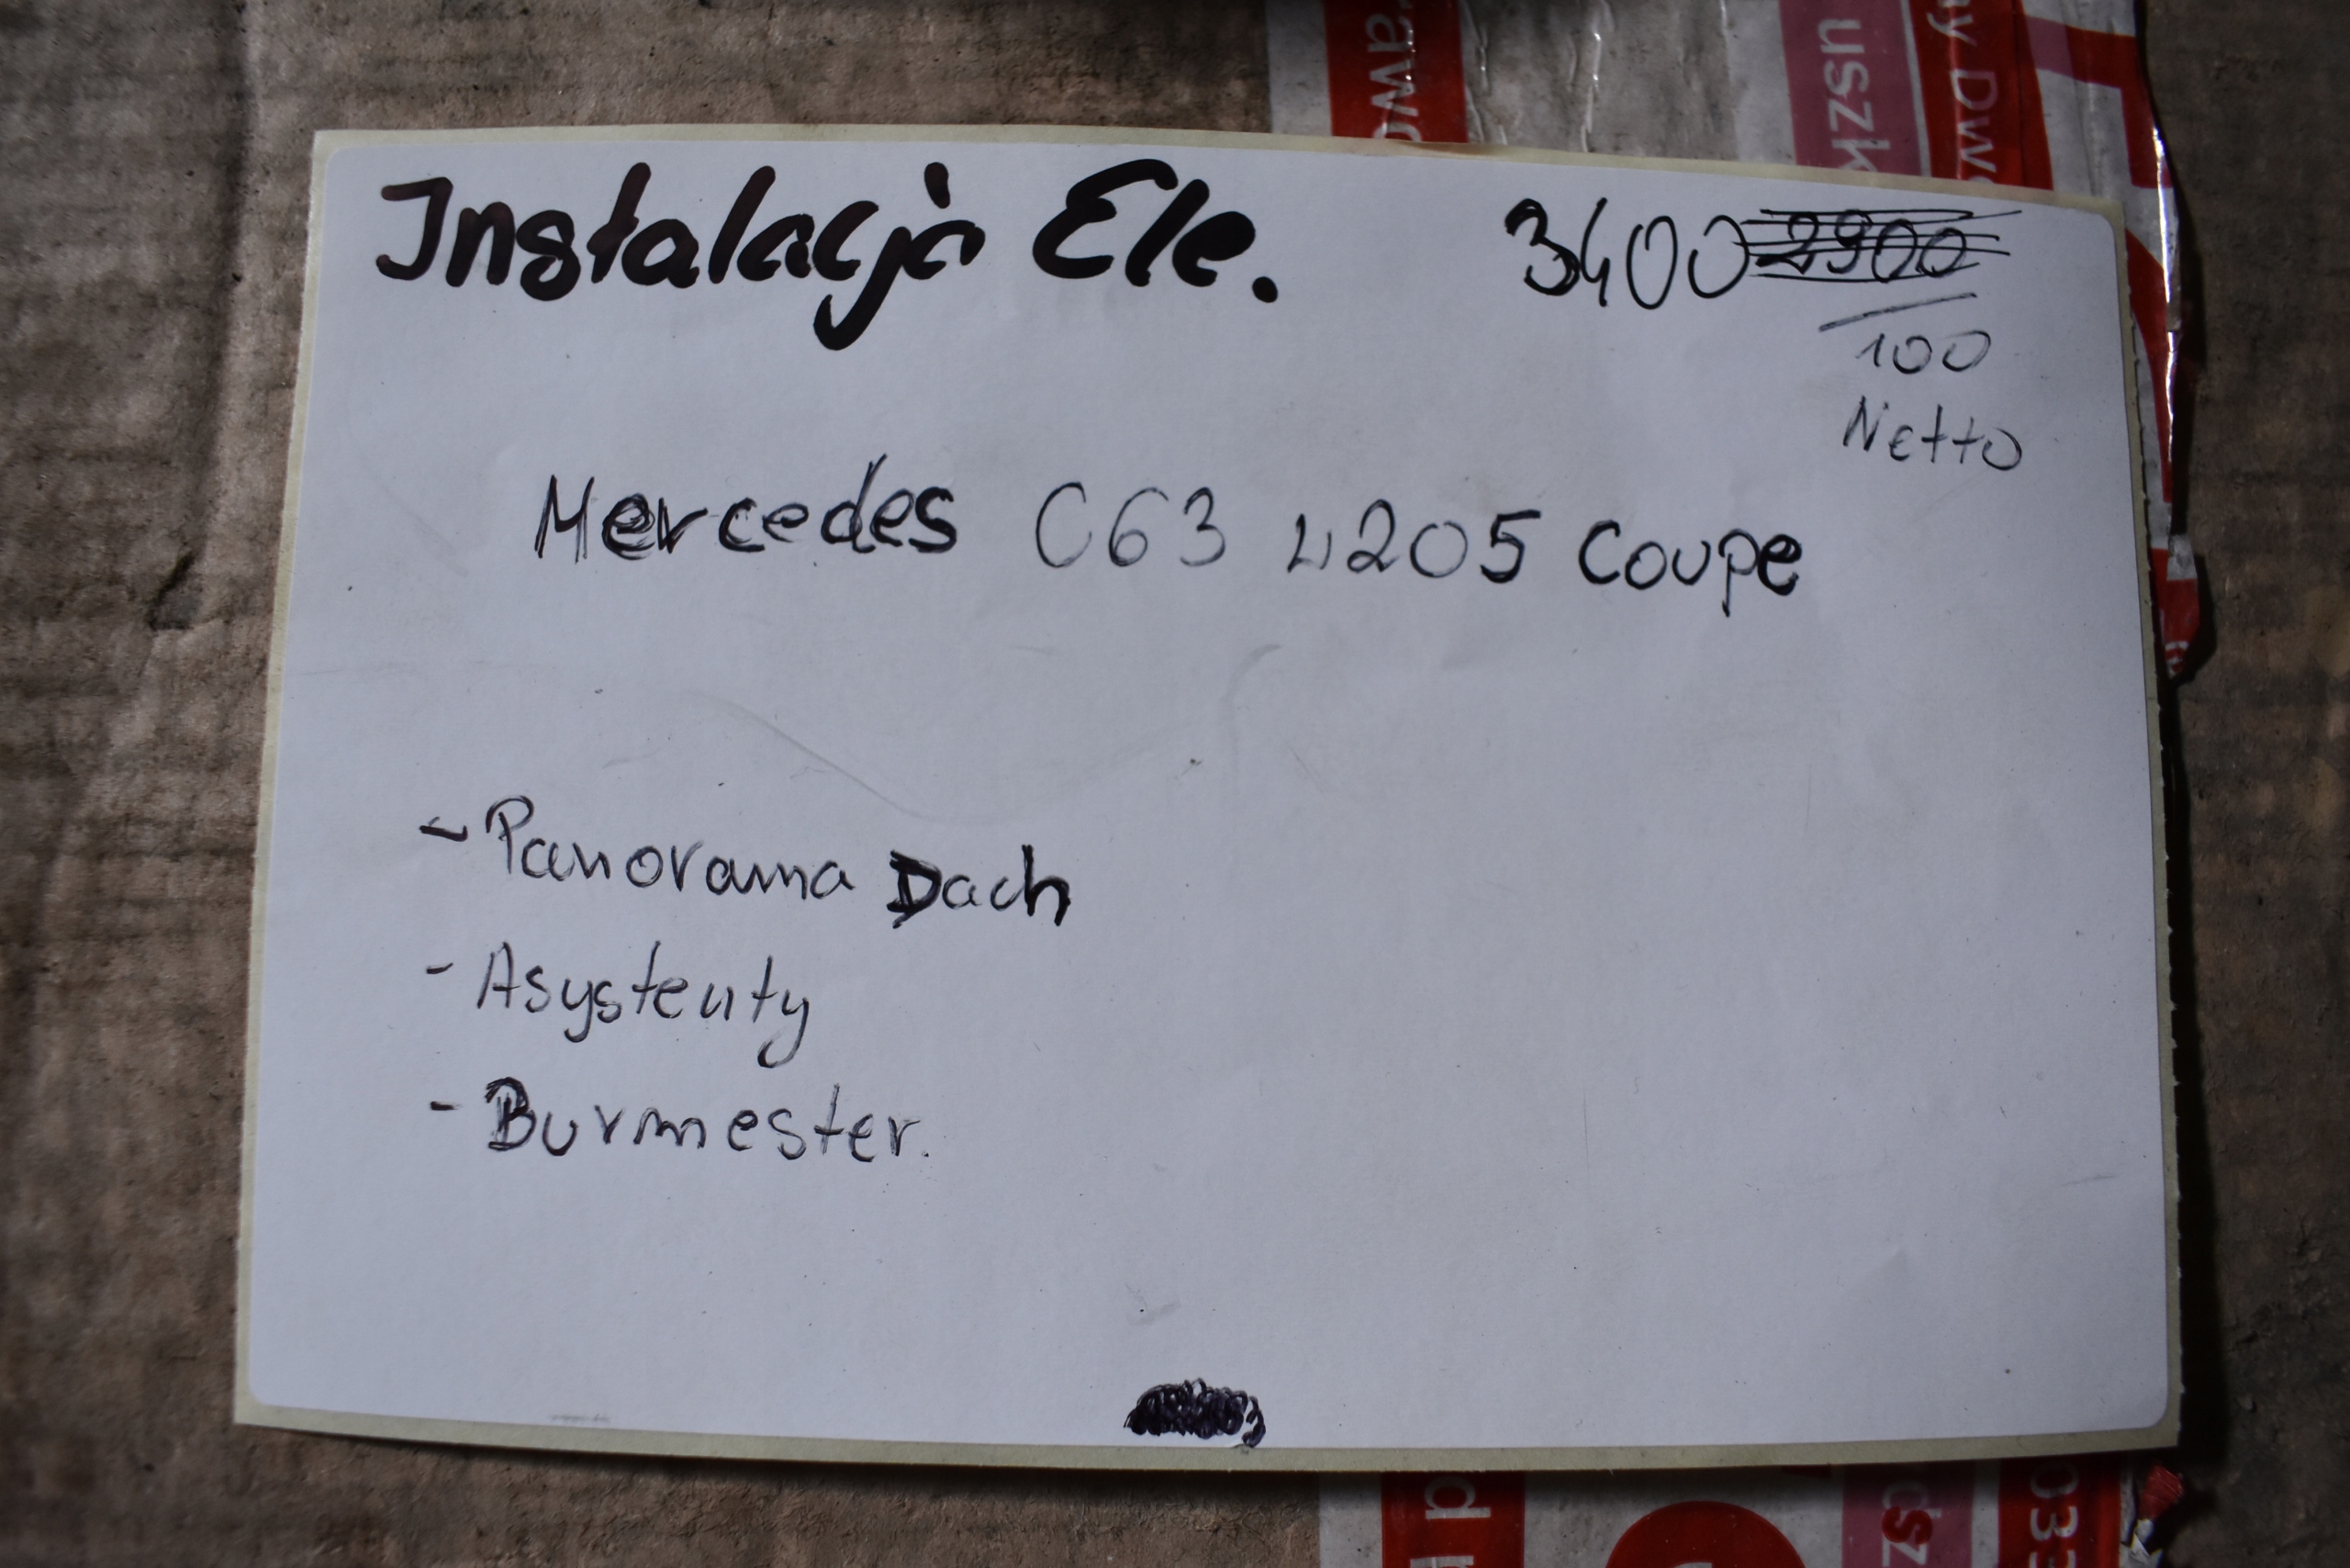 Instalacja Ele.
3400 2900
100
Netto
Mercedes C63 W205 Coupe
- Panorama Dach
- Asystenty
- Burmester.
uszk
y Dwo
awo